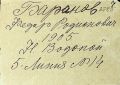 Баранов
Федор Родионович
1905
Н Водопой
5 Линия №14